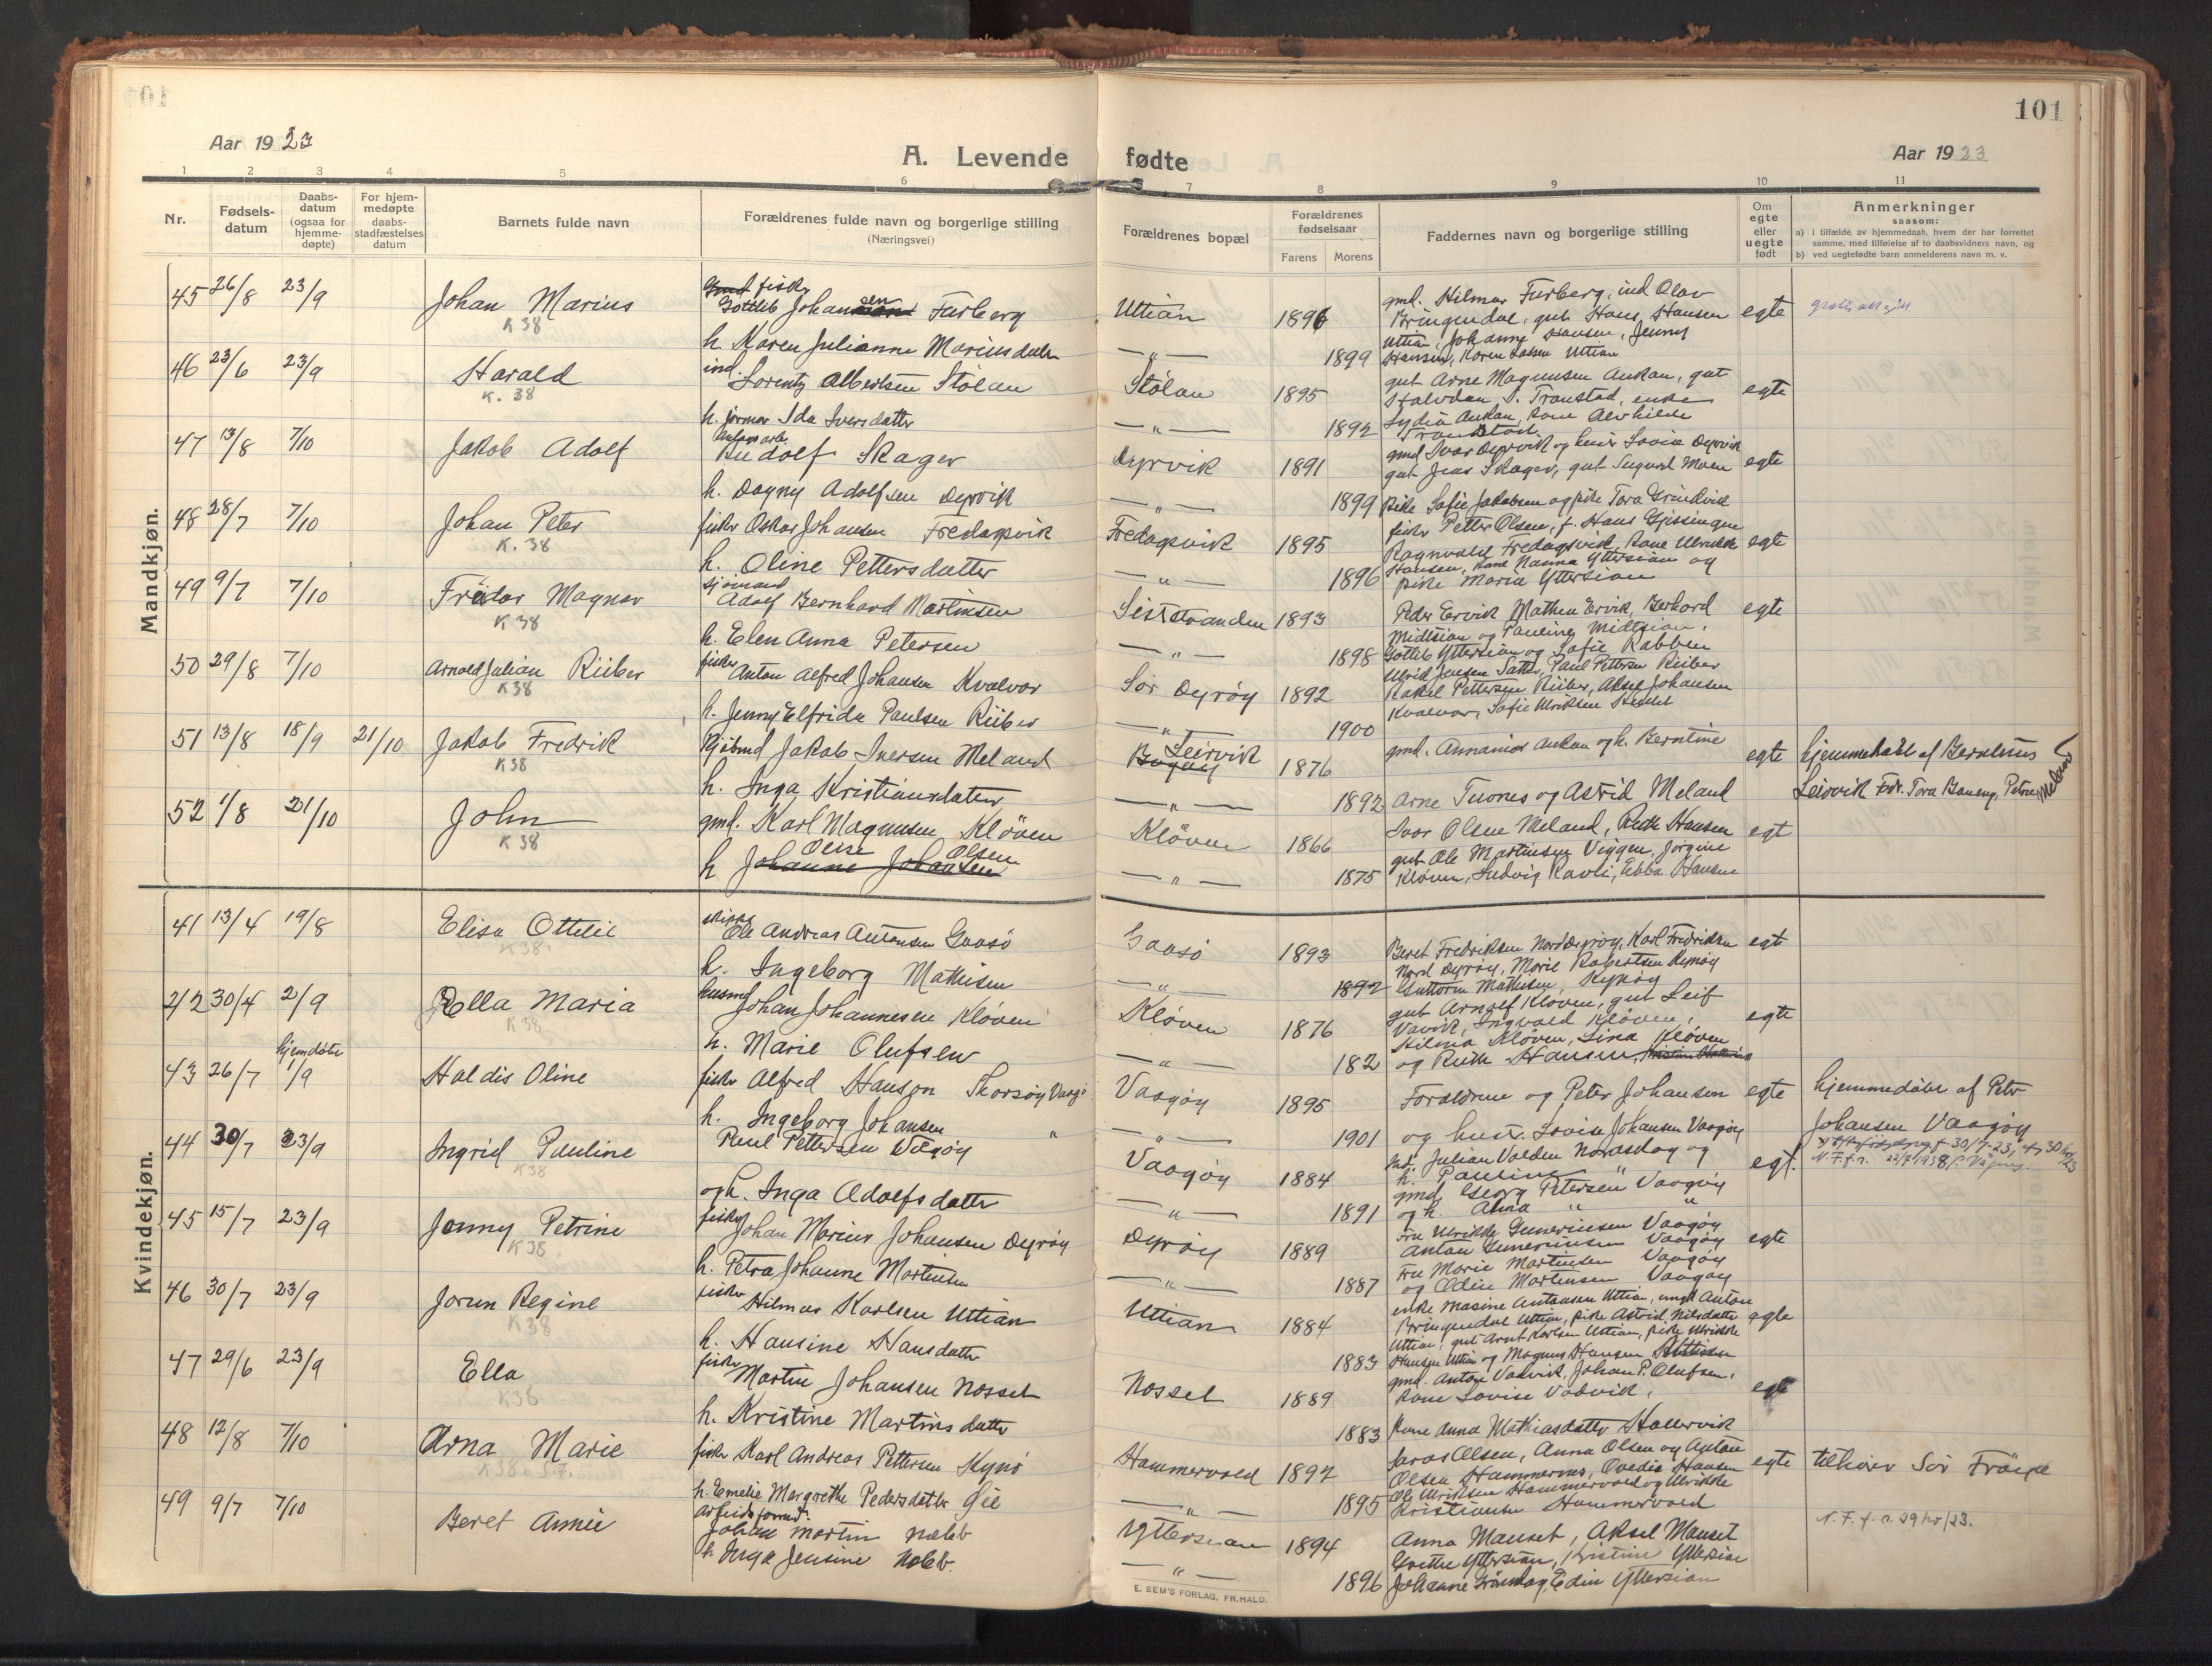 101
Aar 1923
A. Levende fødte
Aar 1923
1 2 3 4 5 6 7 8 9 10 11
Nr.
Fødsels-
datum
Daabs-
datum
(ogsaa for
hjemme-
døpte)
For hjem-
medøpte
daabs-
stadfæstelses
datum
Barnets fulde navn
Forældrenes fulde navn og borgerlige stilling
(Næringsvei)
Forældrenes bopæl
Forældrenes
fødselsaar
Farens Morens
Faddernes navn og borgerlige stilling
Om
egte
eller
uegte
født
Anmerkninger
saasom:
a) i tilfælde av hjemmedaab, hvem der har forrettet
samme, med tilføielse af to daabsvidners navn, og
b) ved uegtefødte barn anmelderens navn m. v.
Mandkjøn.
45 26/8 23/9 Johan Marius K 38
fisker Gottlib Johansen Furberg Uttian 1896
h. Karen Julianne Mariusdatter —"— 1899
gmd. Hilmar Furberg, ind Olav
Bringendal, gut Hans Hansen
Uttian, Johanne Hansen, Jenny
Hansen, Karen Lassen Uttian
egte
46 23/6 23/9 Harald K. 38
ind. Lorentz Albertsen Stølan Stølan 1895
h. jormor Ida Iversdatter —"— 1892
gut Arne Magnusen Aukan, gut
Halvdan Transtad, enke
Lydia Aukan, kone Alvhilde
Transtad
egte
47 13/8 7/10 Jakob Adolf
Rudolf Skager Dyrvik 1891
h. Dagny Adolfsen Dyrvik —"— 1899
gmd Ivar Dyrvik og hustr Lovise Dyrvik
gut Jens Skager, gut Sigurd Moen
Pike Sofie Jakobsen og pike Tora Grindvik
egte
48 28/7 7/10 Johan Peter K. 38
fisker Oskar Johansen Fredagsvik Fredagsvik 1895
h. Oline Pettersdatter —"— 1896
fisker Petter Olsen, f. Hans Gjissingen
Ragnvald Fredagsvik, kone Ulrikke
Hansen, kone Nanna Yttersian og
pike Maria Yttersian
egte
49 9/7 7/10 Freidar Magnar K 38
sjømand Adolf Bernhard Martinsen Sistranden 1893
h. Elen Anna Petersen —"— 1898
Peder Ervik Mathea Ervik, Berhard
Midtsian og Pauline Midtsian,
Gottlib Yttersian og Sofie Rabben
egte
50 29/8 7/10 Arnold Julian Riiber K 38
fisker Anton Alfred Johansen Kvalvar Sør Dyrøy 1892
h. Jenny Elfrida Paulsen Riiber —"— 1900
Ulrik Jensen Sætter, Paul Pettersen Riiber
Rakel Pettersen Riiber, Aksel Johansen
Kvalvar, Sofie Ulriksen
51 13/8 18/9 21/10 Jakob Fredrik K 38
Kjøbmd Jakob Iversen Meland Leirvik 1876
h. Inga Kristiansdatter —"— 1892
gmd. Annanias Aukan og h. Berntine
Arne Tuones og Astrid Meland
egte
hjemmedøbt af Berntinus
Leirvik Fdr. Tora Boneng, Petra Meland
52 1/8 21/10 John K 38
gmd. Karl Magnusen Kløven Kløven 1866
h Oline Olsen Johanne Johansen —"— 1875
Ivar Olsen Meland, Ruth Hansen
gut Ole Martinsen Viggen, Jørgine
Kløven, Ludvig Ravli, Ebba Hansen
egt
Kvindekjøn.
41 13/4 19/8 Elisa Ottilie K 38
skipper Ole Andreas Antonsen Gaasø Gaasø 1893
h. Ingeborg Mathisen —"— 1892
Beret Fredriksen Nord Dyrøy, Karl Fredriksen
Nord Dyrøy, Marie Robertsen Kynøy
Guttorm Mathisen, Kynøy
egte
42 30/4 2/9 Ella Maria K 38
husmd Johan Johannesen Kløven Kløven 1876
h. Marie Olufsen —"— 182
gut Arnolf Kløven, gut Leif
Vavik, Ingvald Kløven,
Hilma Kløven, Lina Kløven
og Ruth Hansen,
egte
43 26/7 hjemdøbt 1/9 Haldis Oline
fisker Alfred Hanson Thorsøy Vaagø Vaagøy 1895
h. Ingeborg Johansen " —"— 1901
Forældrene og Peter Johansen
og hustr. Lovise Johansen Vaagøy
egte
hjemmedøbt af Petr
Johansen Vaagøy
44 30/7 23/9 Ingrid Pauline K 38
Paul Pettersen Vågøy Vaagøy 1884
og h. Inga Adolfsdatter —"— 1891
ind. Julian Valden Nordsdag og
h. Pauline "
gmd. Georg Petersen Vaagøy
og h. Alma " "
egt.
N.F.f.n. 22/7 1938 f. Vågøy.
45 15/7 23/9 Jenny Petrine K 38
fisker Johan Marius Johansen Dyrøy Dyrøy 1889
h. Petra Johanne Martinsen —"— 1887
Fru Ulrikke Gunerinsen Vaagøy
Anton Gunerinsen Vaagøy
Fru Marie Martinsen Vaagøy
og Edin Martinsen Vaagøy
egte
46 30/7 23/9 Jorun Regine K 38
fisker Hilmar Karlsen Uttian Uttian 1884
h. Hansine Hansdatter 1883
enke Masine Antonsen Uttian, ungk Anton
Bringendal Uttian, pike Astrid Nilsdatter
Uttian, gut Arnt Karlsen Uttian, pike Ulrikke
Hansen Uttian og Magnus Hansen Uttian
egte
47 29/6 23/9 Ella K38
fisker Martin Johansen Nosset Nosset 1889
h. Kristine Martinsdatter 1883
gmd. Anton Vadvik, Johan P. Olufsen,
kone Lovise Vadvik,
Kone Anna Mathiasdatter Hallervik
egte
48 12/8 7/10 Arna Marie K38. S.F.
fisker Karl Andreas Pettersen Kynø Hammervold 1892
h. Emelie Margrethe Pedersdatter Gie —"— 1895
Lars Olsen, Anna Olsen og Anton
Olsen Hammernes, Ovedia Hansen
Ole Ulriksen Hammervold og Ulrikke
Kristiansen Hammervold
egte
tilhører Sør Frøya
49 9/7 7/10 Beret Annie
arbeidsformd. Johan Martin Nabb Yttersian 1894
h. Inga Jensine Nabb. —"— 1896
Anna Mauset, Aksel Mauset
Grethe Yttersian, Kristine Yttersian
Johanne Grønskag, Edin Yttersian
N.F.f.n. 29/10/23.
E. SEM'S FORLAG, FR.HALD.